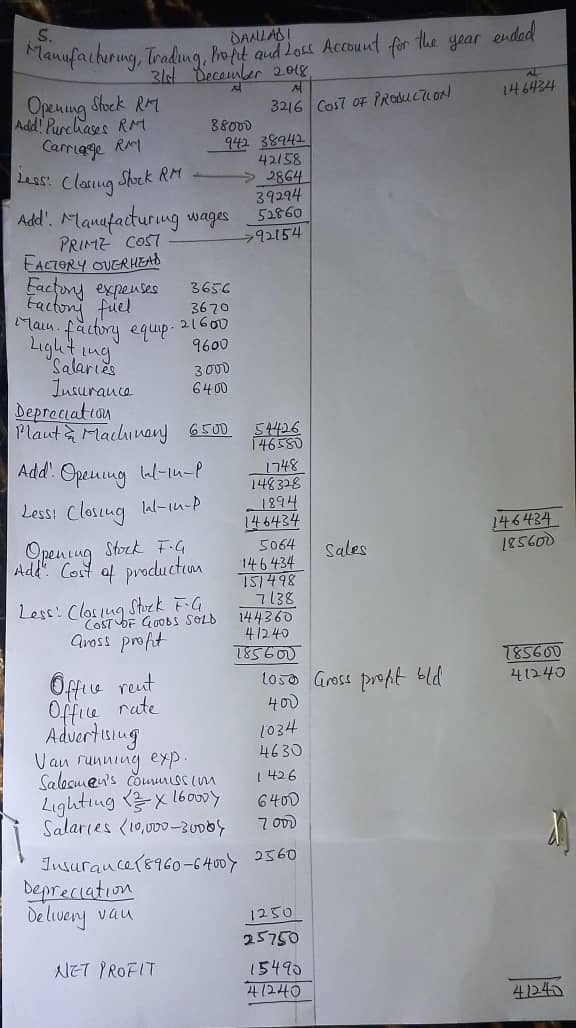 5. DANLADI
Manufacturing, Trading, Profit and Loss Account for the year ended
31st December 2018
₦ ₦ ₦
Opening Stock RM 3216 COST OF PRODUCTION 146434
Add: Purchases RM 38000
Carriage RM 942 38942
42158
Less: Closing Stock RM → 2864
39294
Add: Manufacturing wages 52860
PRIME COST → 92154
FACTORY OVERHEAD
Factory expenses 3656
Factory fuel 3670
Main. factory equip. 21600
Lighting 9600
Salaries 3000
Insurance 6400
Depreciation
Plant & Machinery 6500 54426
146580
Add: Opening W-in-P 1748
148328
Less: Closing W-in-P 1894
146434 146434
Opening Stock F.G 5064 Sales 185600
Add: Cost of production 146434
151498
Less: Closing Stock F.G 7138
COST OF GOODS SOLD 144360
Gross profit 41240
185600 185600
Office rent 1050 Gross profit b/d 41240
Office rate 400
Advertising 1034
Van running exp. 4630
Salesmen's commission 1426
Lighting (2/5 x 16000) 6400
Salaries (10,000-3000) 7000
Insurance (8960-6400) 2560
Depreciation
Delivery van 1250
25750
NET PROFIT 15490
41240 41240